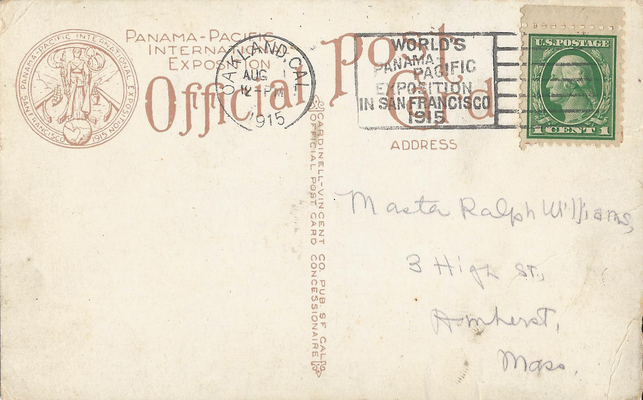 PANAMA-PACIFIC
INTERNATIONAL
EXPOSITION
Official Post Card
PANAMA-PACIFIC INTERNATIONAL EXPOSITION 1915
SAN FRANCISCO
OAKLAND, CAL.
AUG 1
12-PM
1915
WORLD'S
PANAMA
PACIFIC
EXPOSITION
IN SAN FRANCISCO
1915
U.S. POSTAGE
1 CENT 1
ADDRESS
CARDINELL-VINCENT CO PUB SF CAL
OFFICIAL POST CARD CONCESSIONAIRE
Masta Ralph Williams,
3 High St.,
Amherst,
Mass.